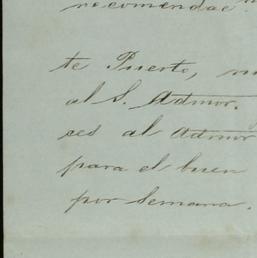 recomendac
te Puerto, m
al S. Admor.
ces al Admor
para el buen
por Semana.